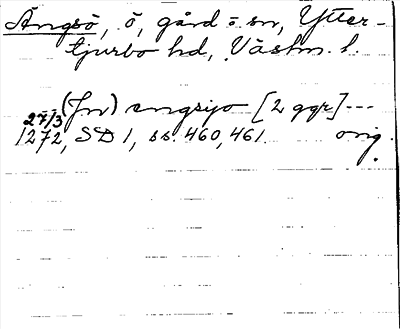 Ängsö, ö, gård o sn, Ytter-
tjurbo hd, Västm. l.
(In) engsijo [2 ggr] ---
27/3
1272, SD 1, ss. 460, 461. orig.